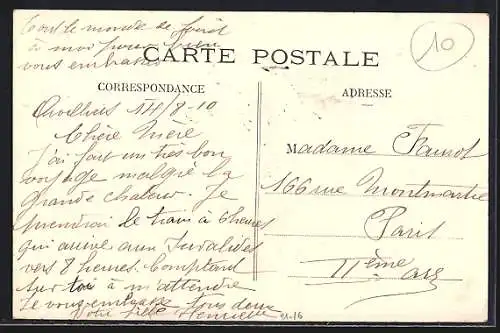 Tout le monde se joint
à moi pour bien
vous embrasser
10
CARTE POSTALE
CORRESPONDANCE
ADRESSE
14/8-10
Chère Mère
J'ai fait un très bon
voyage malgré la
grande chaleur. Je
prendrai le train à 6 heures
qui arrive aux Invalides
vers 8 heures. Comptant
sur toi à m'attendre
Je vous embrasse tous deux
Votre fille Henriette
Madame
166 rue Montmartre
Paris
IIème arr